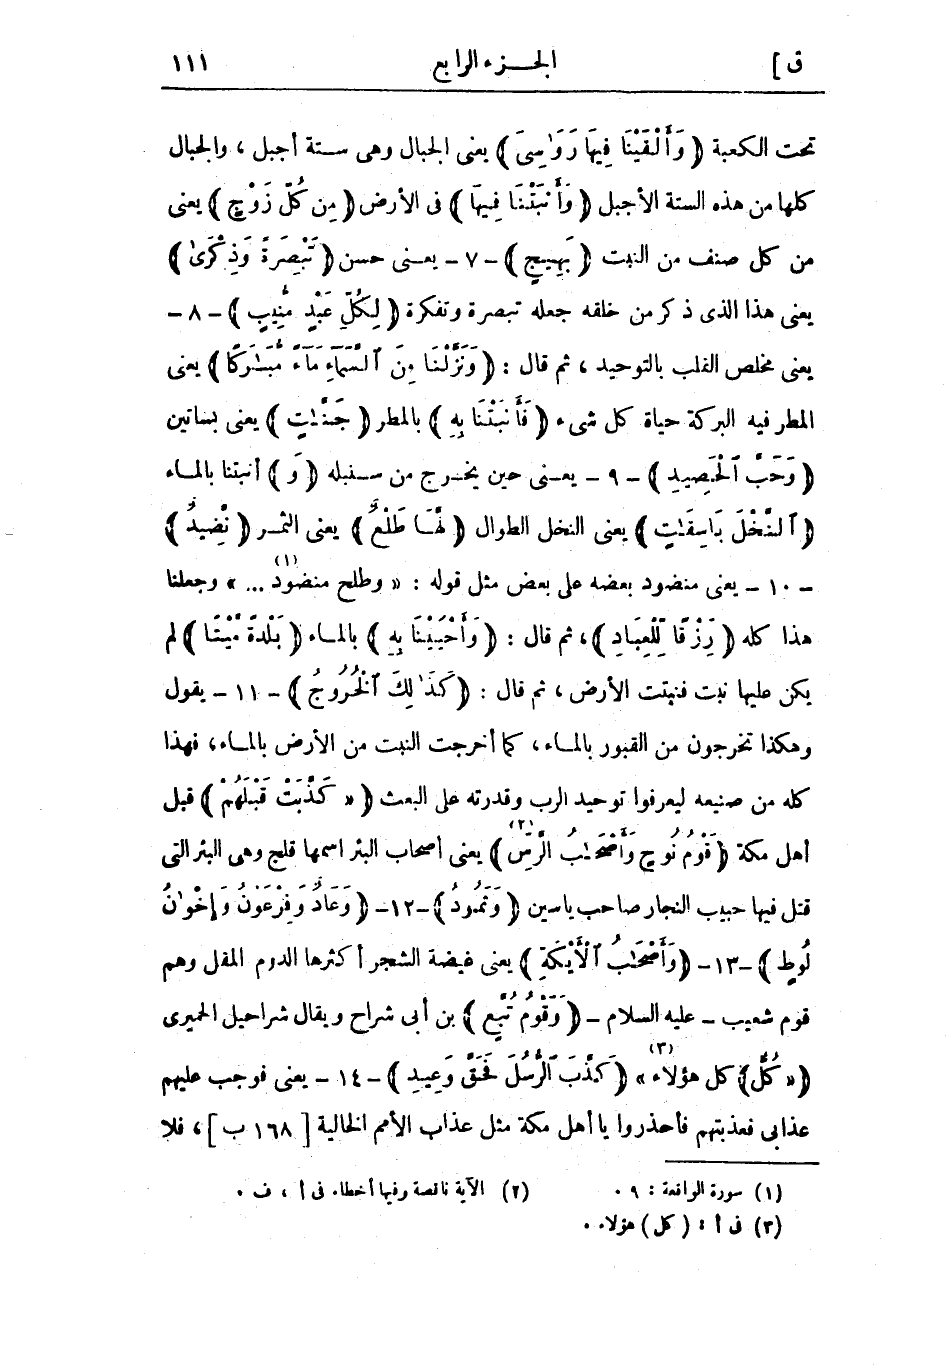 ق ] الجـزء الرابع ١١١
تحت الكعبة ﴿ وَأَلْقَيْنَا فِيهَا رَوَاسِيَ ﴾ يعنى الجبال وهى ستة أجبل ، والجبال
كلها من هذه الستة الأجبل ﴿ وَأَنبَتْنَا فِيهَا ﴾ فى الأرض ﴿ مِن كُلِّ زَوْجٍ ﴾ يعنى
من كل صنف من النبت ﴿ بَهِيجٍ ﴾ - ٧ - يعنى حسن ﴿ تَبْصِرَةً وَذِكْرَىٰ ﴾
يعنى هذا الذى ذكر من خلقه جعله تبصرة وتفكرة ﴿ لِكُلِّ عَبْدٍ مُّنِيبٍ ﴾ - ٨ -
يعنى مخلص القلب بالتوحيد ، ثم قال : ﴿ وَنَزَّلْنَا مِنَ ٱلسَّمَآءِ مَآءً مُّبَـٰرَكًا ﴾ يعنى
المطر فيه البركة حياة كل شىء ﴿ فَأَنبَتْنَا بِهِ ﴾ بالمطر ﴿ جَنَّـٰتٍ ﴾ يعنى بساتين
﴿ وَحَبَّ ٱلْحَصِيدِ ﴾ - ٩ - يعنى حين يخرج من سنبله ﴿ وَ ﴾ أنبتنا بالماء
﴿ ٱلنَّخْلَ بَاسِقَـٰتٍ ﴾ يعنى النخل الطوال ﴿ لَّهَا طَلْعٌ ﴾ يعنى الثمر ﴿ نَّضِيدٌ ﴾
- ١٠ - يعنى منضود بعضه على بعض مثل قوله : « وطلح منضود ... » (١) وجعلنا
هذا كله ﴿ رِزْقًا لِّلْعِبَادِ ﴾، ثم قال : ﴿ وَأَحْيَيْنَا بِهِ ﴾ بالماء ﴿ بَلْدَةً مَّيْتًا ﴾ لم
يكن عليها نبت فنبتت الأرض ، ثم قال : ﴿ كَذَٰلِكَ ٱلْخُرُوجُ ﴾ - ١١ - يقول
وهكذا تخرجون من القبور بالماء، كما أخرجت النبت من الأرض بالماء، فهذا
كله من صنيعه ليعرفوا توحيد الرب وقدرته على البعث ﴿ « كَذَّبَتْ قَبْلَهُمْ ﴾ قبل
أهل مكة ﴿ قَوْمُ نُوحٍ وَأَصْحَـٰبُ الرَّسِّ (٢) ﴾ يعنى أصحاب البئر اسمها فلج وهى البئر التى
قتل فيها حبيب النجار صاحب ياسين ﴿ وَثَمُودُ ﴾ -١٢- ﴿ وَعَادٌ وَفِرْعَوْنُ وَإِخْوَٰنُ
لُوطٍ ﴾ -١٣- ﴿ وَأَصْحَـٰبُ ٱلْأَيْكَةِ ﴾ يعنى غيضة الشجر أكثرها الدوم المقل وهم
قوم شعيب - عليه السلام - ﴿ وَقَوْمُ تُبَّعٍ ﴾ بن أبى شراح ويقال شراحيل الحميرى
﴿ « كُلٌّ ﴾ كل هؤلاء » (٣) ﴿ كَذَّبَ ٱلرُّسُلَ فَحَقَّ وَعِيدِ ﴾ - ١٤ - يعنى فوجب عليهم
عذابى فعذبتهم فأحذروا يا أهل مكة مثل عذاب الأمم الخالية [ ١٦٨ ب ] ، فلا
(١) سورة الواقعة : ٩ . (٢) الآية ناقصة وفيها أخطاء فى أ ، ف .
(٣) فى أ : ( كل ) هؤلاء .